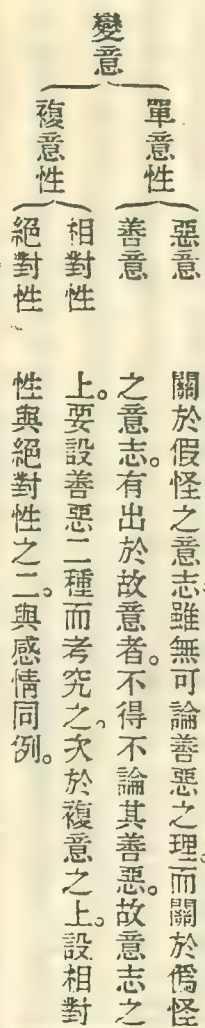 變意
單意性
惡意
善意
複意性
相對性
絕對性
關於假怪之意志雖無可論善惡之理。而關於僞怪
之意志。有出於故意者。不得不論其善惡。故意志之
上。要設善惡二種而考究之。次於複意之上。設相對
性與絕對性之二。與感情同例。